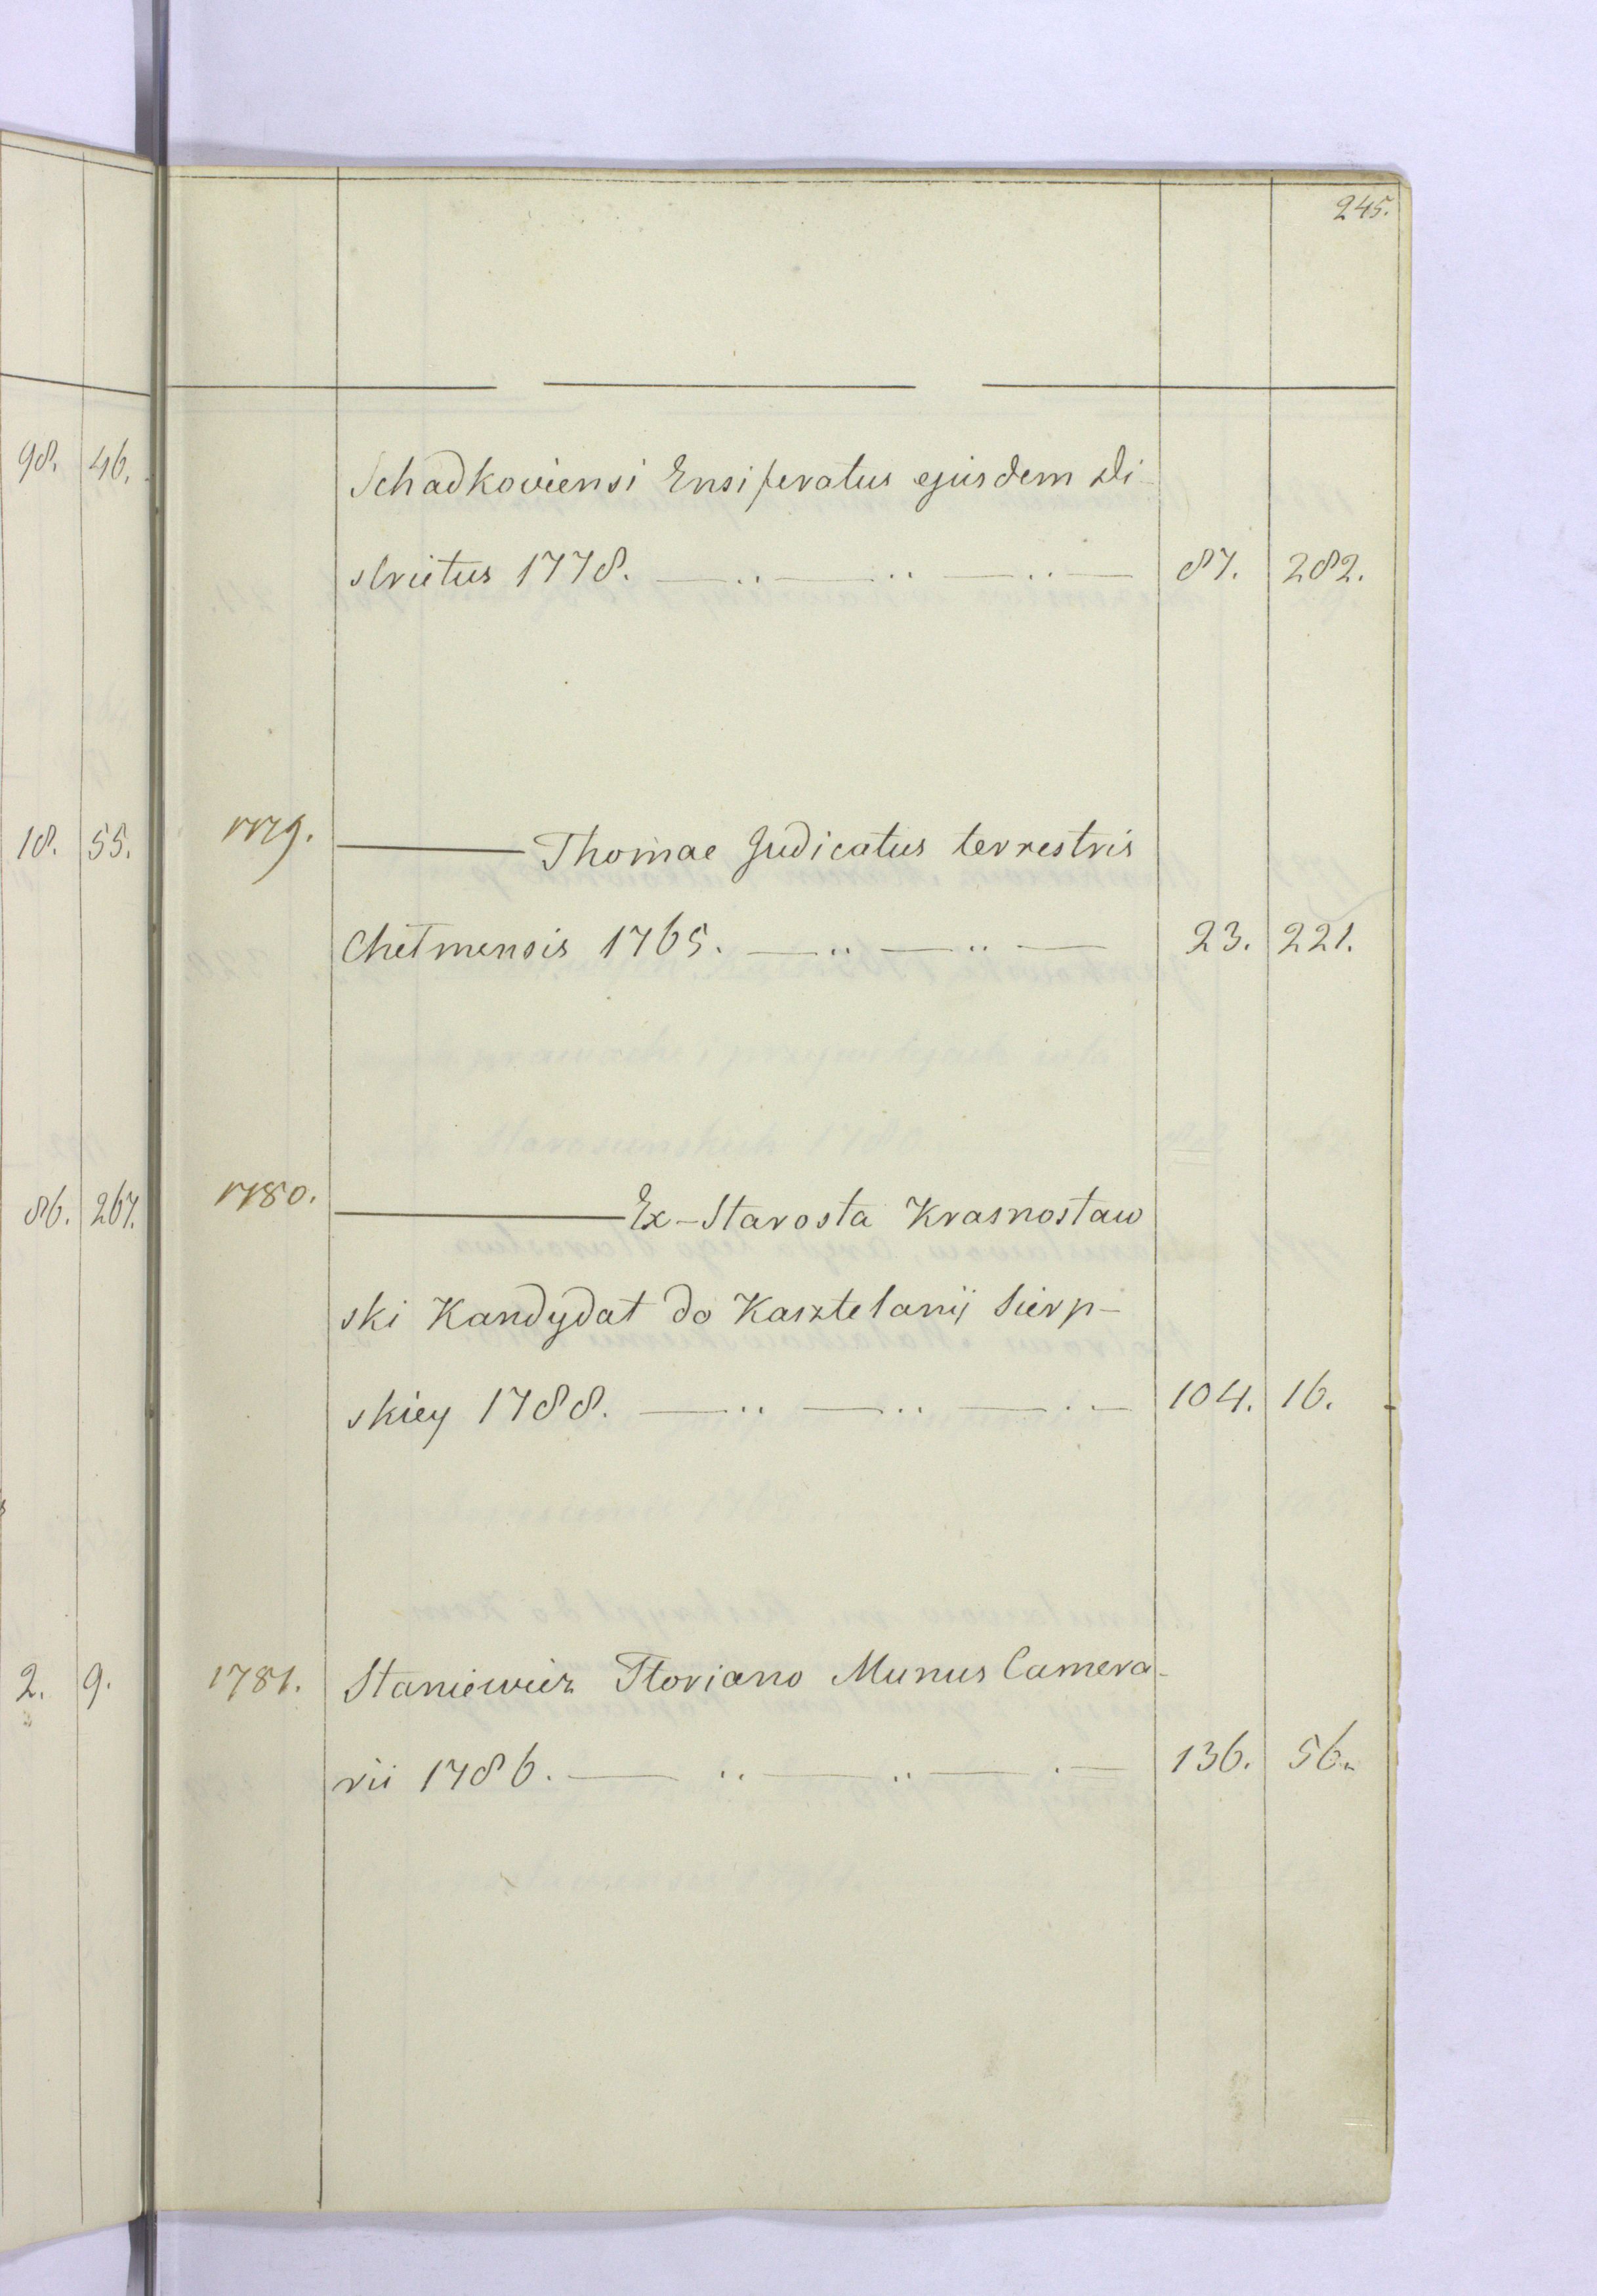 245.
98. 46.
Schadkoviensi Ensiferatus ejusdem Di-
strictus 1778. — .. — .. — .. — 87. 282.
18. 55.
1779. ——— Thomae Judicatus terrestris
Chełmensis 1765. — .. — .. — 23. 221.
86. 267.
1780. ——— Ex-Starosta Krasnostaw
ski Kandydat do Kasztelanij Sierp-
skiey 1788. — .. — .. — .. — 104. 16.
2. 9.
1781. Staniewicz Floriano Munus Camera-
rii 1786. — .. — .. — . — 136. 56.